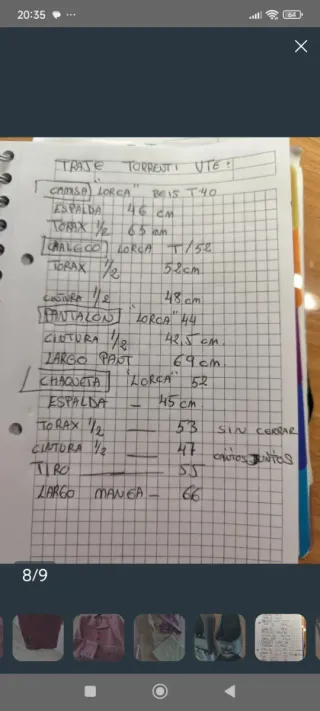 20:35
64
TRAJE TORRENTI VTE:
CAMISA "LORCA" BEIS T40
ESPALDA 46 cm
TORAX 1/2 65 cm
CHALECO LORCA T/52
TORAX 1/2 52 cm
CINTURA 1/2 48 cm
PANTALÓN "LORCA" 44
CINTURA 1/2 42,5 cm.
LARGO PANT 69 cm.
CHAQUETA "LORCA" 52
ESPALDA — 45 cm
TORAX 1/2 — 53 SIN CERRAR
CINTURA 1/2 — 47 CANTOS JUNTOS
TIRO — 55
LARGO MANGA — 66
8/9